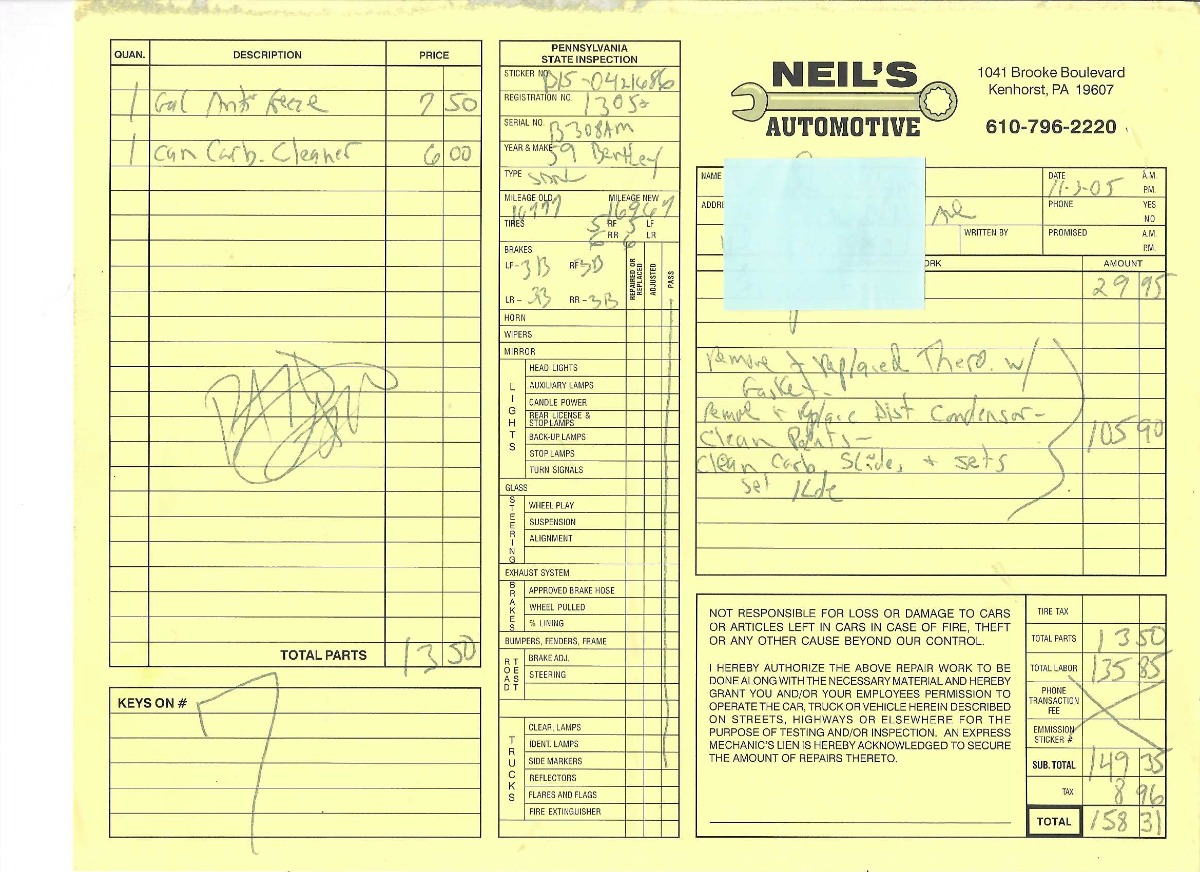 QUAN. DESCRIPTION PRICE
1 Gal Anti Feeze 7 50
1 can Carb. Cleaner 6 00
PAID
TOTAL PARTS 13 50
KEYS ON #
7
PENNSYLVANIA
STATE INSPECTION
STICKER NO.
REGISTRATION NO. 1305
SERIAL NO. B308AM
YEAR & MAKE 59 Bentley
TYPE
MILEAGE OLD MILEAGE NEW
16777 16967
TIRES 5 RF 5 LF
6 RR 6 LR
BRAKES
LF- 3B RF 3B
LR - 3B RR - 3B
REPAIRED OR REPLACED
ADJUSTED
PASS
HORN
WIPERS
MIRROR
LIGHTS
HEAD LIGHTS
AUXILIARY LAMPS
CANDLE POWER
REAR LICENSE &
STOP LAMPS
BACK-UP LAMPS
STOP LAMPS
TURN SIGNALS
GLASS
STEERING
WHEEL PLAY
SUSPENSION
ALIGNMENT
EXHAUST SYSTEM
BRAKES
APPROVED BRAKE HOSE
WHEEL PULLED
% LINING
BUMPERS, FENDERS, FRAME
ROAD TEST
BRAKE ADJ.
STEERING
TRUCKS
CLEAR, LAMPS
IDENT. LAMPS
SIDE MARKERS
REFLECTORS
FLARES AND FLAGS
FIRE EXTINGUISHER
NEIL'S
AUTOMOTIVE
1041 Brooke Boulevard
Kenhorst, PA 19607
610-796-2220
NAME DATE A.M.
11-3-05 P.M.
ADDRE PHONE YES
Ave NO
WRITTEN BY PROMISED A.M.
P.M.
ORK AMOUNT
29 95
Remove & replaced Ther. w/
Gasket-
remove & replace Dist Condensor-
Clean Points-
Clean Carb, Slide, & Jets
Set Ilde
105 90
NOT RESPONSIBLE FOR LOSS OR DAMAGE TO CARS
OR ARTICLES LEFT IN CARS IN CASE OF FIRE, THEFT
OR ANY OTHER CAUSE BEYOND OUR CONTROL.
I HEREBY AUTHORIZE THE ABOVE REPAIR WORK TO BE
DONE ALONG WITH THE NECESSARY MATERIAL AND HEREBY
GRANT YOU AND/OR YOUR EMPLOYEES PERMISSION TO
OPERATE THE CAR, TRUCK OR VEHICLE HEREIN DESCRIBED
ON STREETS, HIGHWAYS OR ELSEWHERE FOR THE
PURPOSE OF TESTING AND/OR INSPECTION. AN EXPRESS
MECHANIC'S LIEN IS HEREBY ACKNOWLEDGED TO SECURE
THE AMOUNT OF REPAIRS THERETO.
TIRE TAX
TOTAL PARTS 13 50
TOTAL LABOR 135 85
PHONE
TRANSACTION
FEE
EMMISSION
STICKER #
SUB. TOTAL 149 35
TAX 8 96
TOTAL 158 31